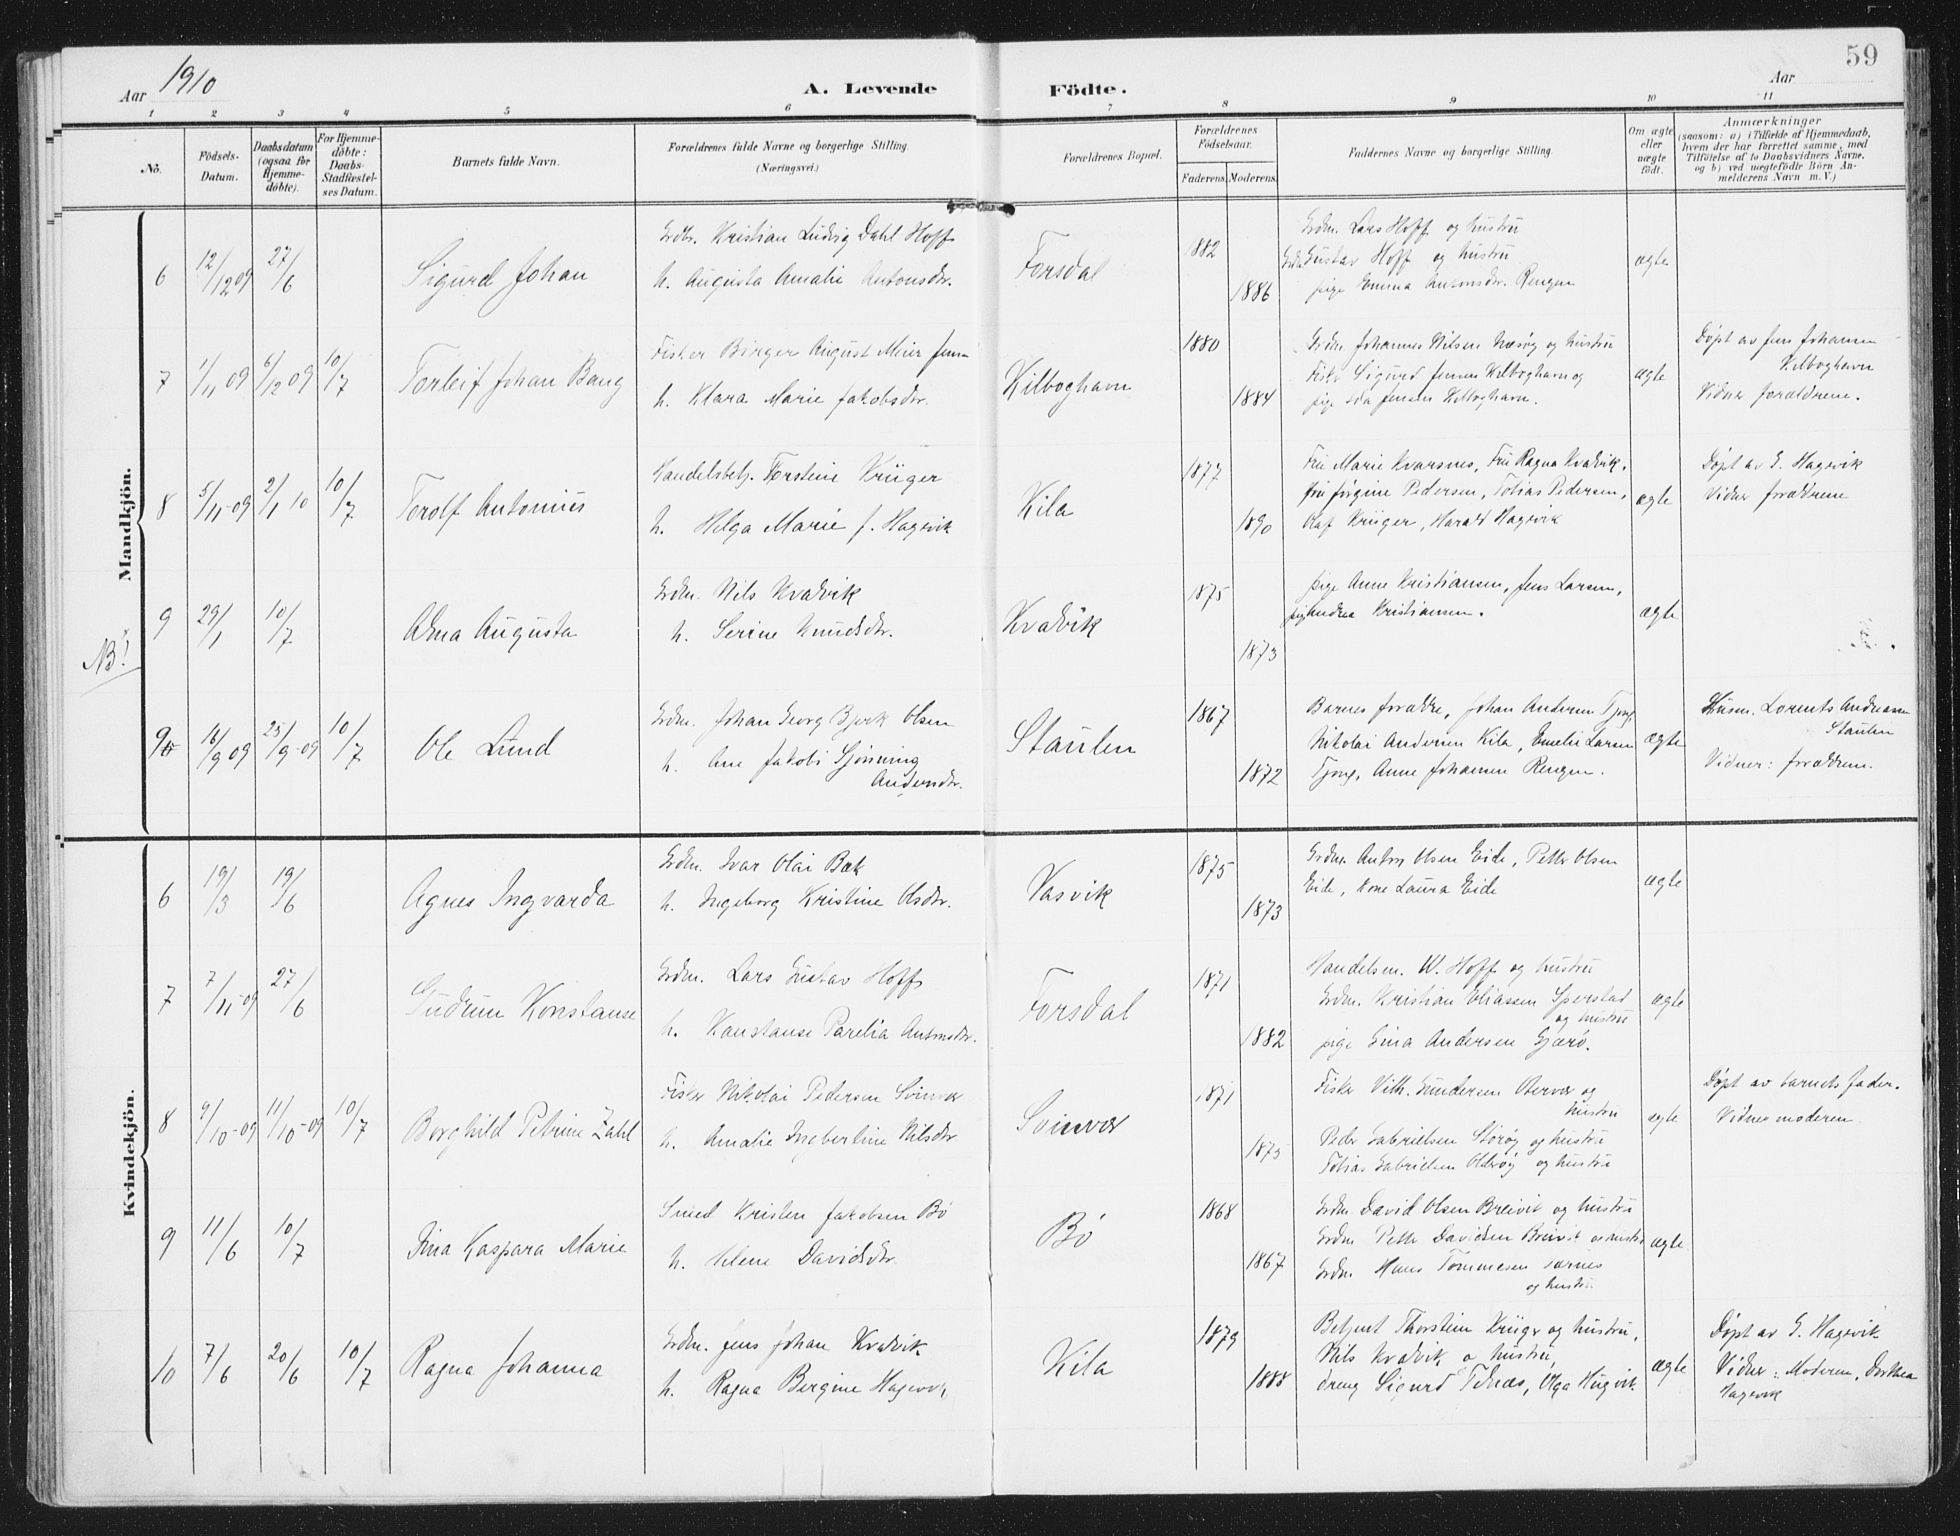 59
Aar 1910
A. Levende Födte.
Aar
1 2 3 4 5 6 7 8 9 10 11
No.
Födsels-Datum.
Daabsdatum (ogsaa for Hjemme-döbte).
For Hjemme-döbte: Daabs-Stadfæstel-ses Datum.
Barnets fulde Navn.
Forældrenes fulde Navne og borgerlige Stilling (Næringsvei.)
Forældrenes Bopæl.
Forældrenes Födselsaar.
Faderens. Moderens.
Faddernes Navne og borgerlige Stilling.
Om ægte eller uægte födt.
Anmærkninger
(saasom: a) i Tilfælde af Hjemmedaab,
hvem der har forrettet samme, med
Tilföielse af to Daabsvidners Navne,
og b) ved uægtefödte Börn An-
melderens Navn m. V.)
Mandkjön.
6 12/12 09 27/6 Sigurd Johan
Grdbr. Kristian Ludvig Dahl Hoff
h. Augusta Amalie Antonsdtr.
Forsdal
882
1886
Grdm. Lars Hoff og hustru
Grdm Gustav Hoff og hustru
pige Emma Antonsdtr. Rengen
ægte
7 1/11 09 6/12 09 10/7 Torleif Johan Bang
Fisker Birger August Meier Jensen
h. Klara Marie Jakobsdtr.
Kilboghavn
1880
1884
Grdm. Johannes Nilsen Næsøy og hustru
Fisker Sigurd Jensen Kilboghavn og
pige Ida Jensen Kilboghavn.
ægte
Døpt av Jens Johansen
Kilboghavn
Vidner forældrene.
8 5/11-09 2/1 10 10/7 Torolf Antonius
Handelsbetj. Torstein Krüger
h. Helga Marie f. Hagevik
Kila
1877
1890
Fru Marie Kvarsnes, Fru Ragna Kvalvik,
fru Jørgine Pedersen, Tobias Pedersen,
Olaf Krüger, Harald Hagevik
ægte
Døpt av E. Hagevik
Vidner forældrene
NB!
9 29/1 10/7 Alma Augusta
Grdm. Nils Kvalvik
h. Serine Knudsdtr.
Kvalvik
1875
1873
pige Anne Kristiansen, Jens Larsen,
pige Andrea Kristiansen.
ægte
9a 16/9 09 25/9-09 10/7 Ole Lund
Grdm. Johan Georg Bjerk Olsen
h. Ane Jakobi Sjønning
Andersdtr.
Staulen
1867
1872
Barnes forældre, Johan Andersen Tjong,
Nikolai Andersen Kila, Emelie Larsen
Tjong, Anne Johansen Rengen.
ægte
Husm. Lorents Andreasen
Staulen
Vidner: forældrene.
Kvindekjön.
6 19/3 19/6 Agnes Ingvarda
Grdm. Ivar Olai Bæk
h. Ingeborg Kristine Olsdtr.
Vasvik
1875
1873
Grdm. Anton Olsen Eide, Petter Olsen
Eide, Kone Laura Eide
ægte
7 7/11-09 27/6 Gudrun Konstanse
Grdm. Lars Gustav Hoff
h. Konstanse Parelia Antonsdtr.
Forsdal
1871
1882
Handelsm. W. Hoff og hustru
Grdm. Kristian Eliassen Sperstad
og hustru
pige Gina Andersen Gjærø.
ægte
8 9/10-09 11/10-09 10/7 Borghild Petrine Zahl
Fisker Nikolai Pedersen Svinvær
h. Amalie Ingbertine Nilsdtr
Svinvær
1871
1875
Fisker Vilh. Gundersen Oterver og
hustru
Peder Gabrielsen Storøy og hustru
Tobias Gabrielsen Olderøy og hustru
ægte
Døpt av barnets fader.
Vidner moderen
9 11/6 10/7 Dina Kaspara Marie
Smed Kristen Jakobsen Bø
h. Helene Davidsdtr.
Bø
1868
1867
Grdm David Olsen Breivik og hustru
Grdm Petter Davidsen Breivik og hustru
Grdm Hans Tommesen Tærnes
og hustru
ægte
10 7/6 20/6 10/7 Ragna Johanna
Grdm. Jens Johan Kvalvik
h. Ragna Bergine Hagevik
Kila
1879
1888
Betjent Thorstein Krüger og hustru,
Nils Kvalvik o hustru,
dreng Sigurd Telnæs, Olga Hagevik.
ægte
Døpt av E. Hagevik
Vidner: Moderen, Dorthea
Hagevik